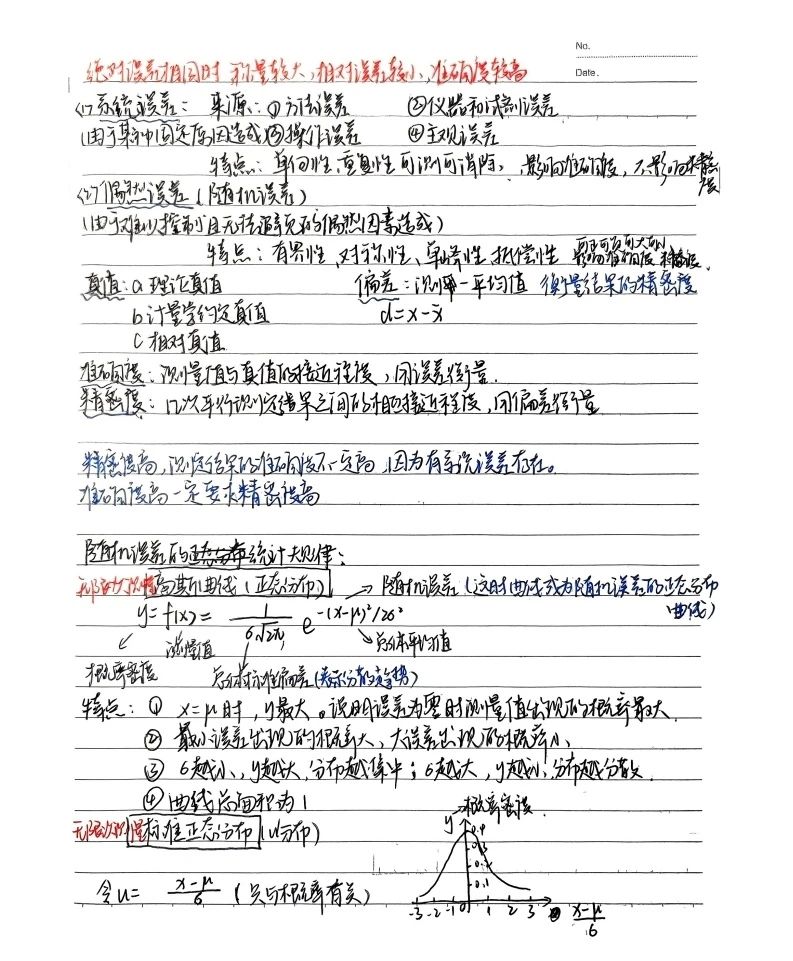 No.
Date.
绝对误差相同时 称量较大,相对误差较小,准确度较高
(1)系统误差: 来源:①方法误差 ③仪器和试剂误差
(由于某种固定原因造成)②操作误差 ④主观误差
特点:单向性、重复性、可测可消除, 影响准确度,不影响精密度
(2)偶然误差(随机误差)
(由于难以控制且无法避免的偶然因素造成)
特点:有界性、对称性、单峰性、抵偿性 影响准确度 精密度
真值:a 理论真值 偏差:测量一平均值 衡量结果的精密度
b 计量学约定真值 d=x-x̄
C 相对真值
准确度:测量值与真值的接近程度,用误差衡量.
精密度:几次平行测定结果之间的相互接近程度,用偏差衡量
精密度高,测定结果的准确度不一定高,因为有系统误差存在。
准确度高一定要求精密度高
随机误差的正态分布统计大规律:
无限次测量高斯曲线(正态分布) → 随机误差(这时曲线成为随机误差的正态分布曲线)
y=f(x)= 1/(σ√2π) e^-(x-μ)²/2σ²
测量值 总体平均值
概率密度 总体标准偏差(表示分散趋势)
特点:① x=μ时,y最大。说明误差为零时测量值出现的概率最大.
② 最小误差出现的概率大,大误差出现的概率小
③ σ越小,y越大,分布越集中;σ越大,y越小,分布越分散.
④ 曲线总面积为1
概率密度
无限次测量标准正态分布(u分布) y 0.4
0.3
0.2
0.1
令u= (x-μ)/σ (只与概率有关)
-3 -2 -1 0 1 2 3 (x-μ)/σ